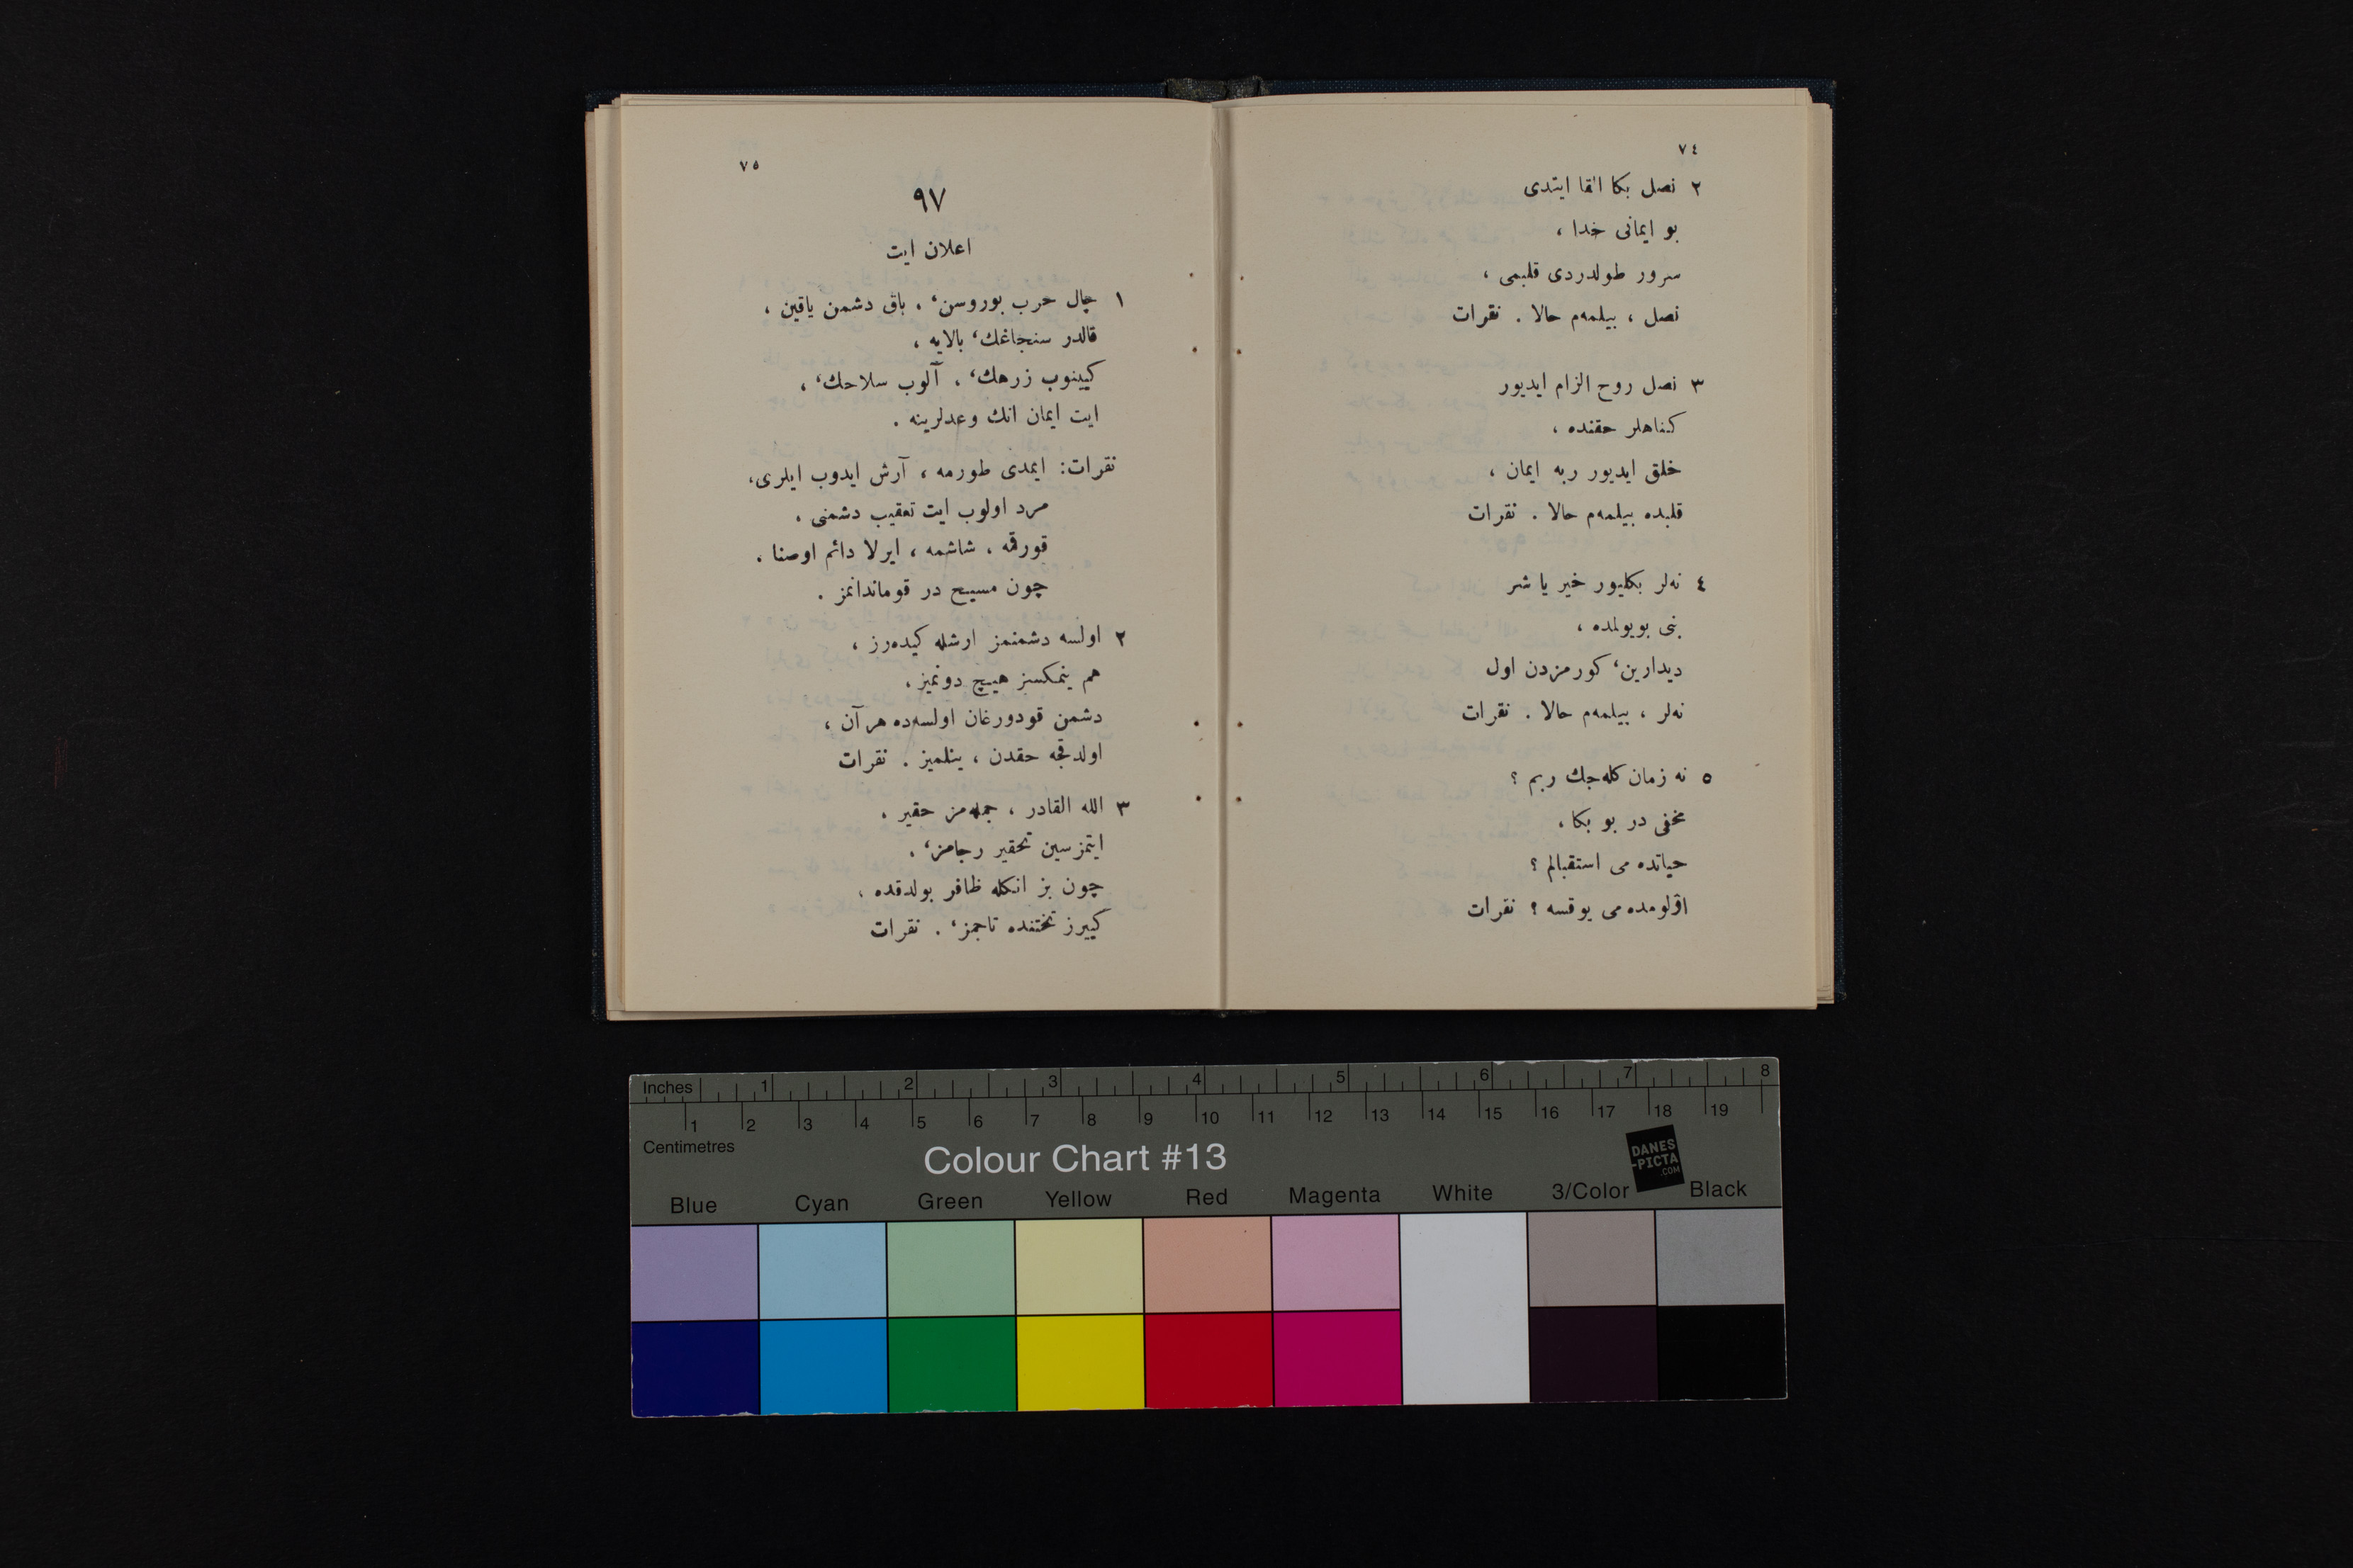 ٧٤
٢ نصل بكا القا ايتدى
بو ايمانى خدا ،
سرور طولدردى قلبمى ،
نصل ، بيلمه‌م حالا . نقرات
٣ نصل روح الزام ايديور
كناهلر حقنده ،
خلق ايديور ربه ايمان ،
قلبده بيلمه‌م حالا . نقرات
٤ نه‌لر بكليور خير يا شر
بنى بويولمده ،
ديدارين، كورمزدن اول
نه‌لر ، بيلمه‌م حالا . نقرات
٥ نه زمان كله‌جك ربم ؟
مخفى در بو بكا ،
حياتده مى استقبالم ؟
اۋلومده مى يوقسه ؟ نقرات
٧٥
٩٧
اعلان ايت
١ چال حرب بوروسن، ، باق دشمن ياقين ،
قالدر سنجاغك، بالايه ،
كيينوب زرهك، ، آلوب سلاحك، ،
ايت ايمان انك وعدلرينه .
نقرات: ايمدى طورمه ، آرش ايدوب ايلرى،
مرد اولوب ايت تعقيب دشمنى ،
قورقمه ، شاشمه ، ايرلا دائم اوصنا .
چون مسيح در قوماندانمز .
٢ اولسه دشمنمز ارشله كيده‌رز ،
هم ينمكسز هيچ دونميز ،
دشمن قودورغان اولسه‌ده هر آن ،
اولدقجه حقدن ، ينلميز . نقرات
٣ الله القادر ، جمله‌مز حقير ،
ايتمزسين تحقير رجامز، .
چون بز انكله ظافر بولدقده ،
كييرز تختنده تاجمز، . نقرات
Inches 1 2 3 4 5 6 7 8
1 2 3 4 5 6 7 8 9 10 11 12 13 14 15 16 17 18 19
Centimetres
Colour Chart #13
DANES
-PICTA
.COM
Blue Cyan Green Yellow Red Magenta White 3/Color Black